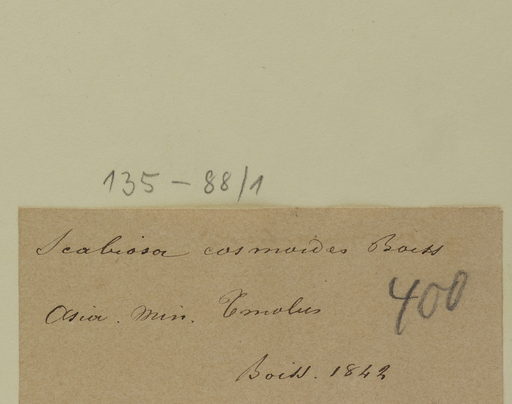 135 - 88/1
Scabiosa cosmoides Boiss
Asia. Min. Tmolus
400
Boiss. 1842